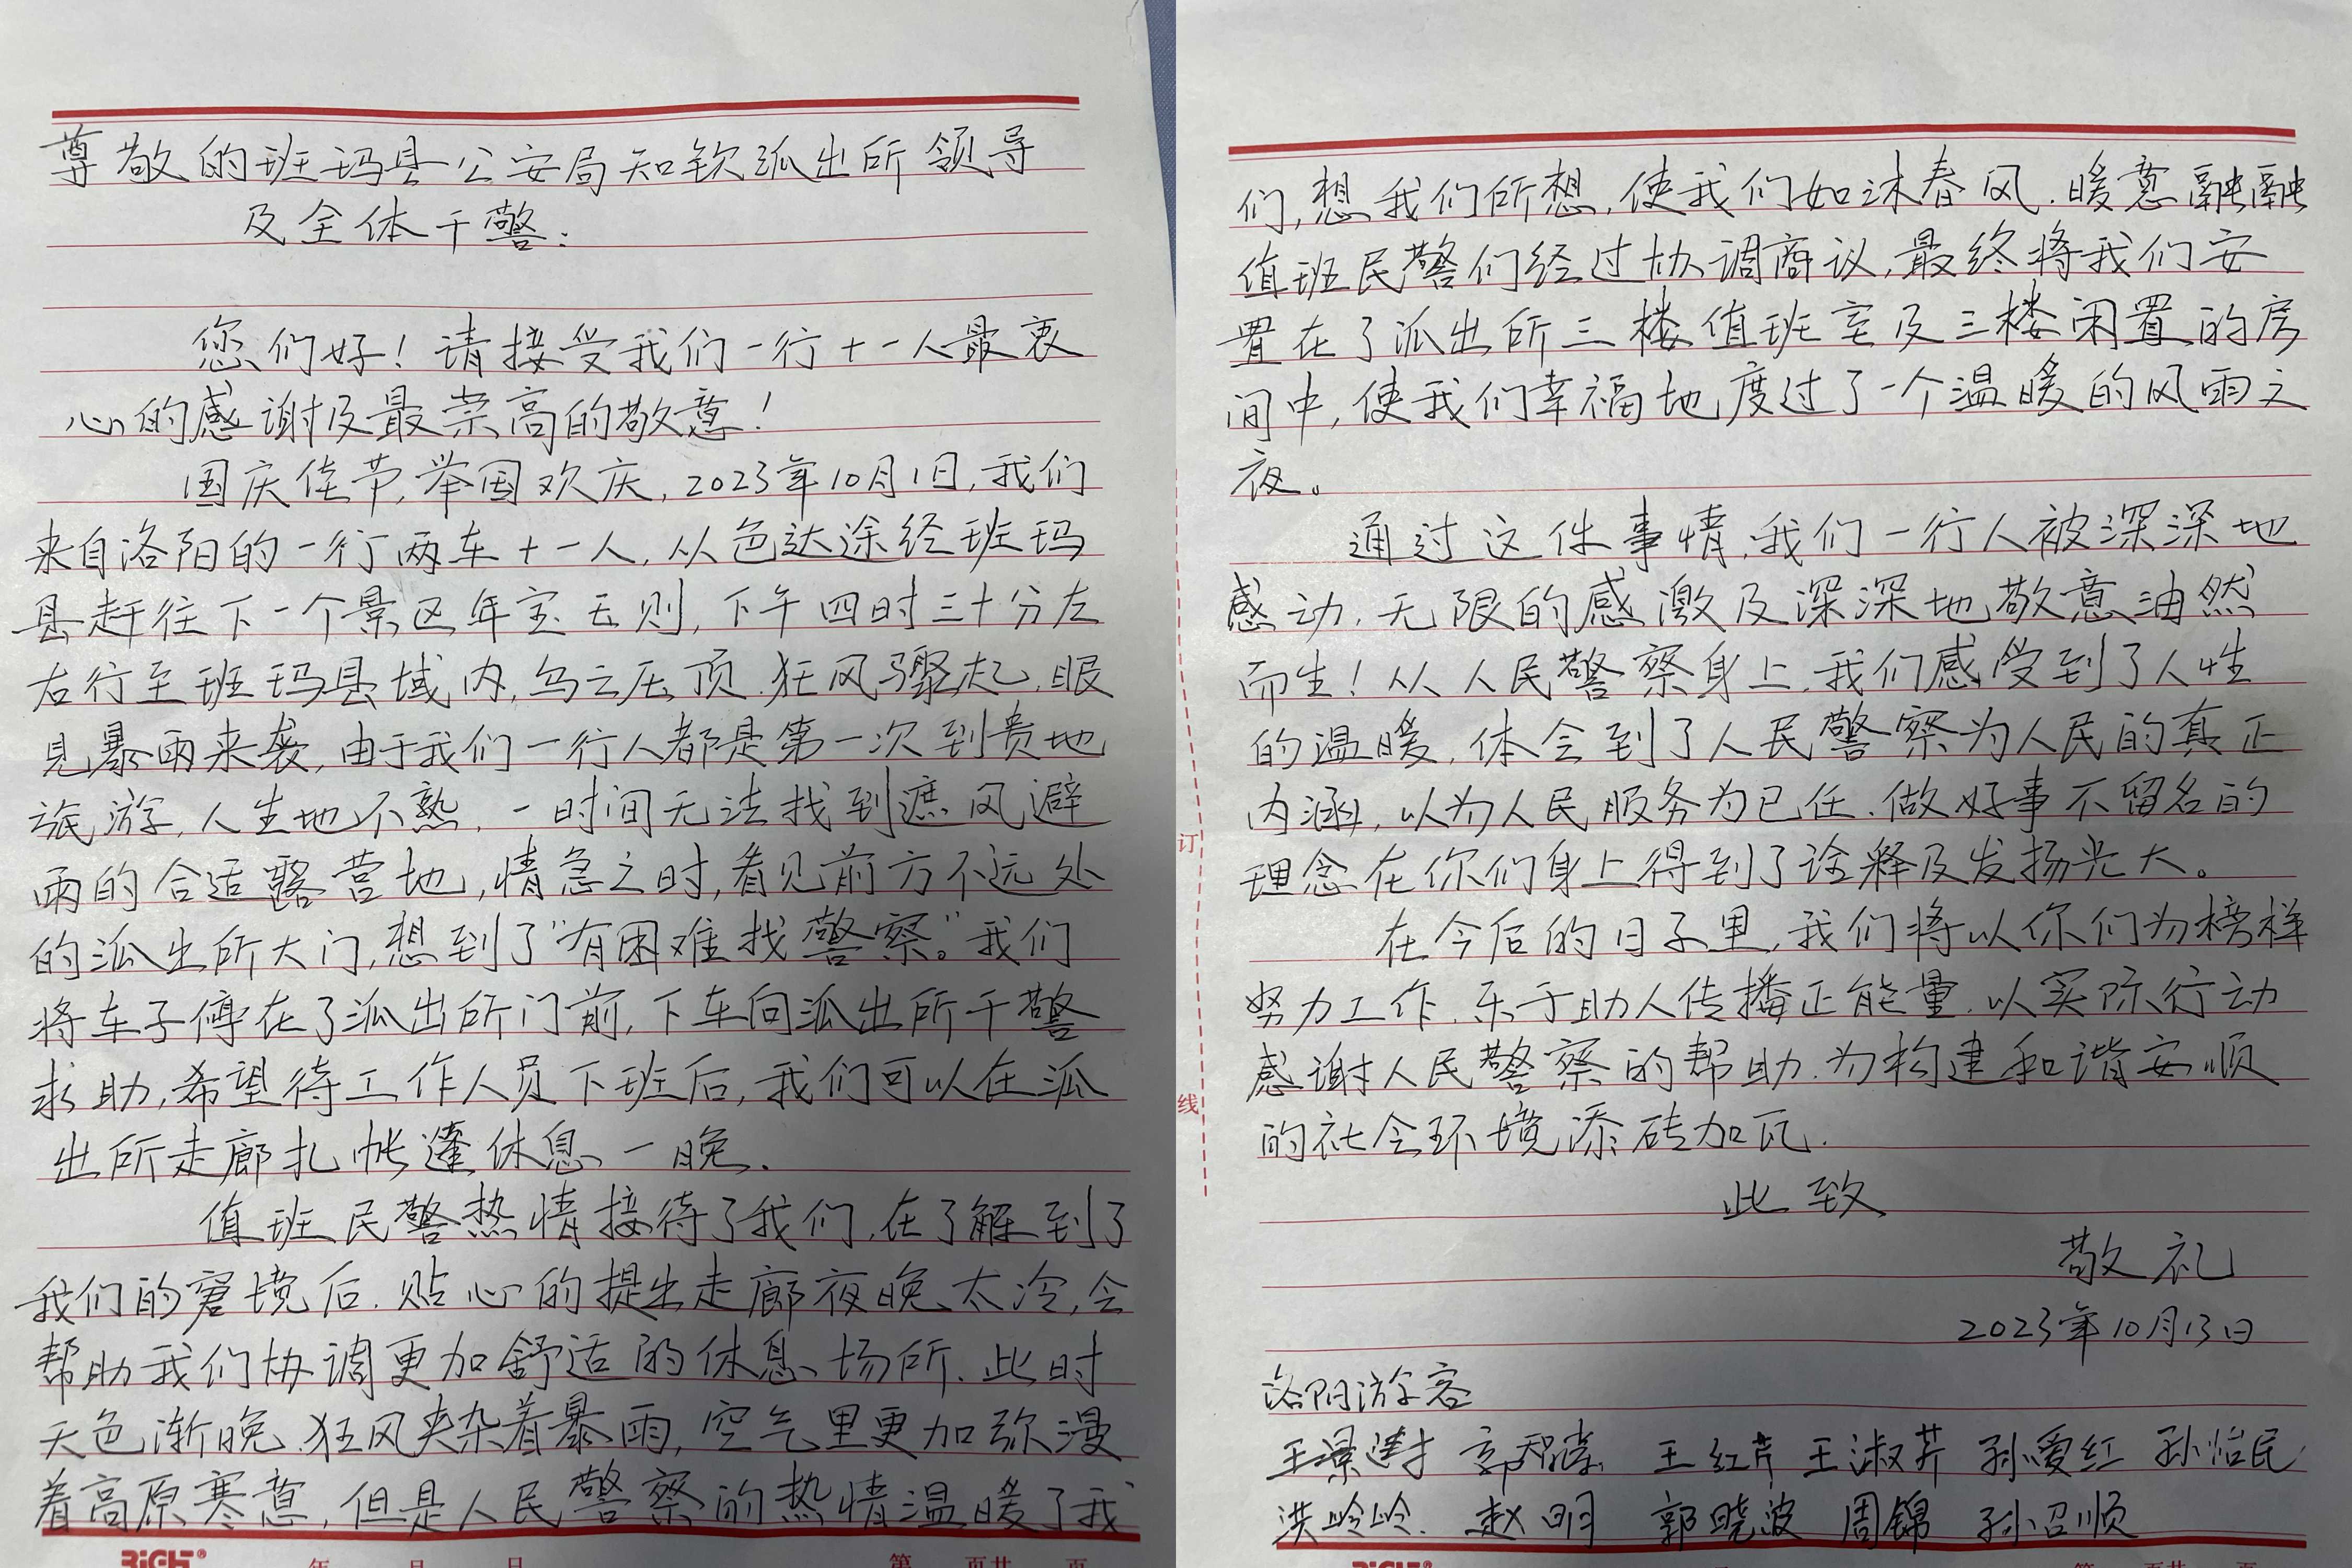 尊敬的班玛县公安局知钦派出所领导
及全体干警:
您们好!请接受我们一行十一人最衷
心的感谢及最崇高的敬意!
国庆佳节,举国欢庆,2023年10月1日,我们
来自洛阳的一行两车十一人,从色达途经班玛
县赶往下一个景区年宝玉则,下午四时三十分左
右行至班玛县域内,乌云压顶.狂风骤起,眼
见暴雨来袭,由于我们一行人都是第一次到贵地
旅游,人生地不熟,一时间无法找到遮风避
雨的合适露营地,情急之时,看见前方不远处
的派出所大门,想到了"有困难找警察。"我们
将车子停在了派出所门前,下车向派出所干警
求助,希望待工作人员下班后,我们可以在派
出所走廊扎帐篷休息一晚.
值班民警热情接待了我们,在了解到了
我们的窘境后.贴心的提出走廊夜晚太冷,会
帮助我们协调更加舒适的休息场所.此时
天色渐晚.狂风夹杂着暴雨,空气里更加弥漫
着高原寒意,但是人民警察的热情温暖了我
BIGHT® 年 月 日 第 页共 页
们,想我们所想,使我们如沐春风.暖意融融
值班民警们经过协调商议,最终将我们安
置在了派出所三楼值班室及三楼闲置的房
间中,使我们幸福地度过了一个温暖的风雨之
夜。
通过这件事情,我们一行人被深深地
感动,无限的感激及深深地敬意油然
而生!从人民警察身上,我们感受到了人性
的温暖,体会到了人民警察为人民的真正
内涵,以为人民服务为己任.做好事不留名的
理念在你们身上得到了诠释及发扬光大。
在今后的日子里,我们将以你们为榜样
努力工作.乐于助人传播正能量.以实际行动
感谢人民警察的帮助.为构建和谐安顺
的社会环境添砖加瓦.
此致
敬礼
2023年10月13日
洛阳游客
王景 王红芹 王淑芹 孙爱红 孙怡民
洪岭岭. 赵明 郭晓波 周锦 孙召顺
订
线